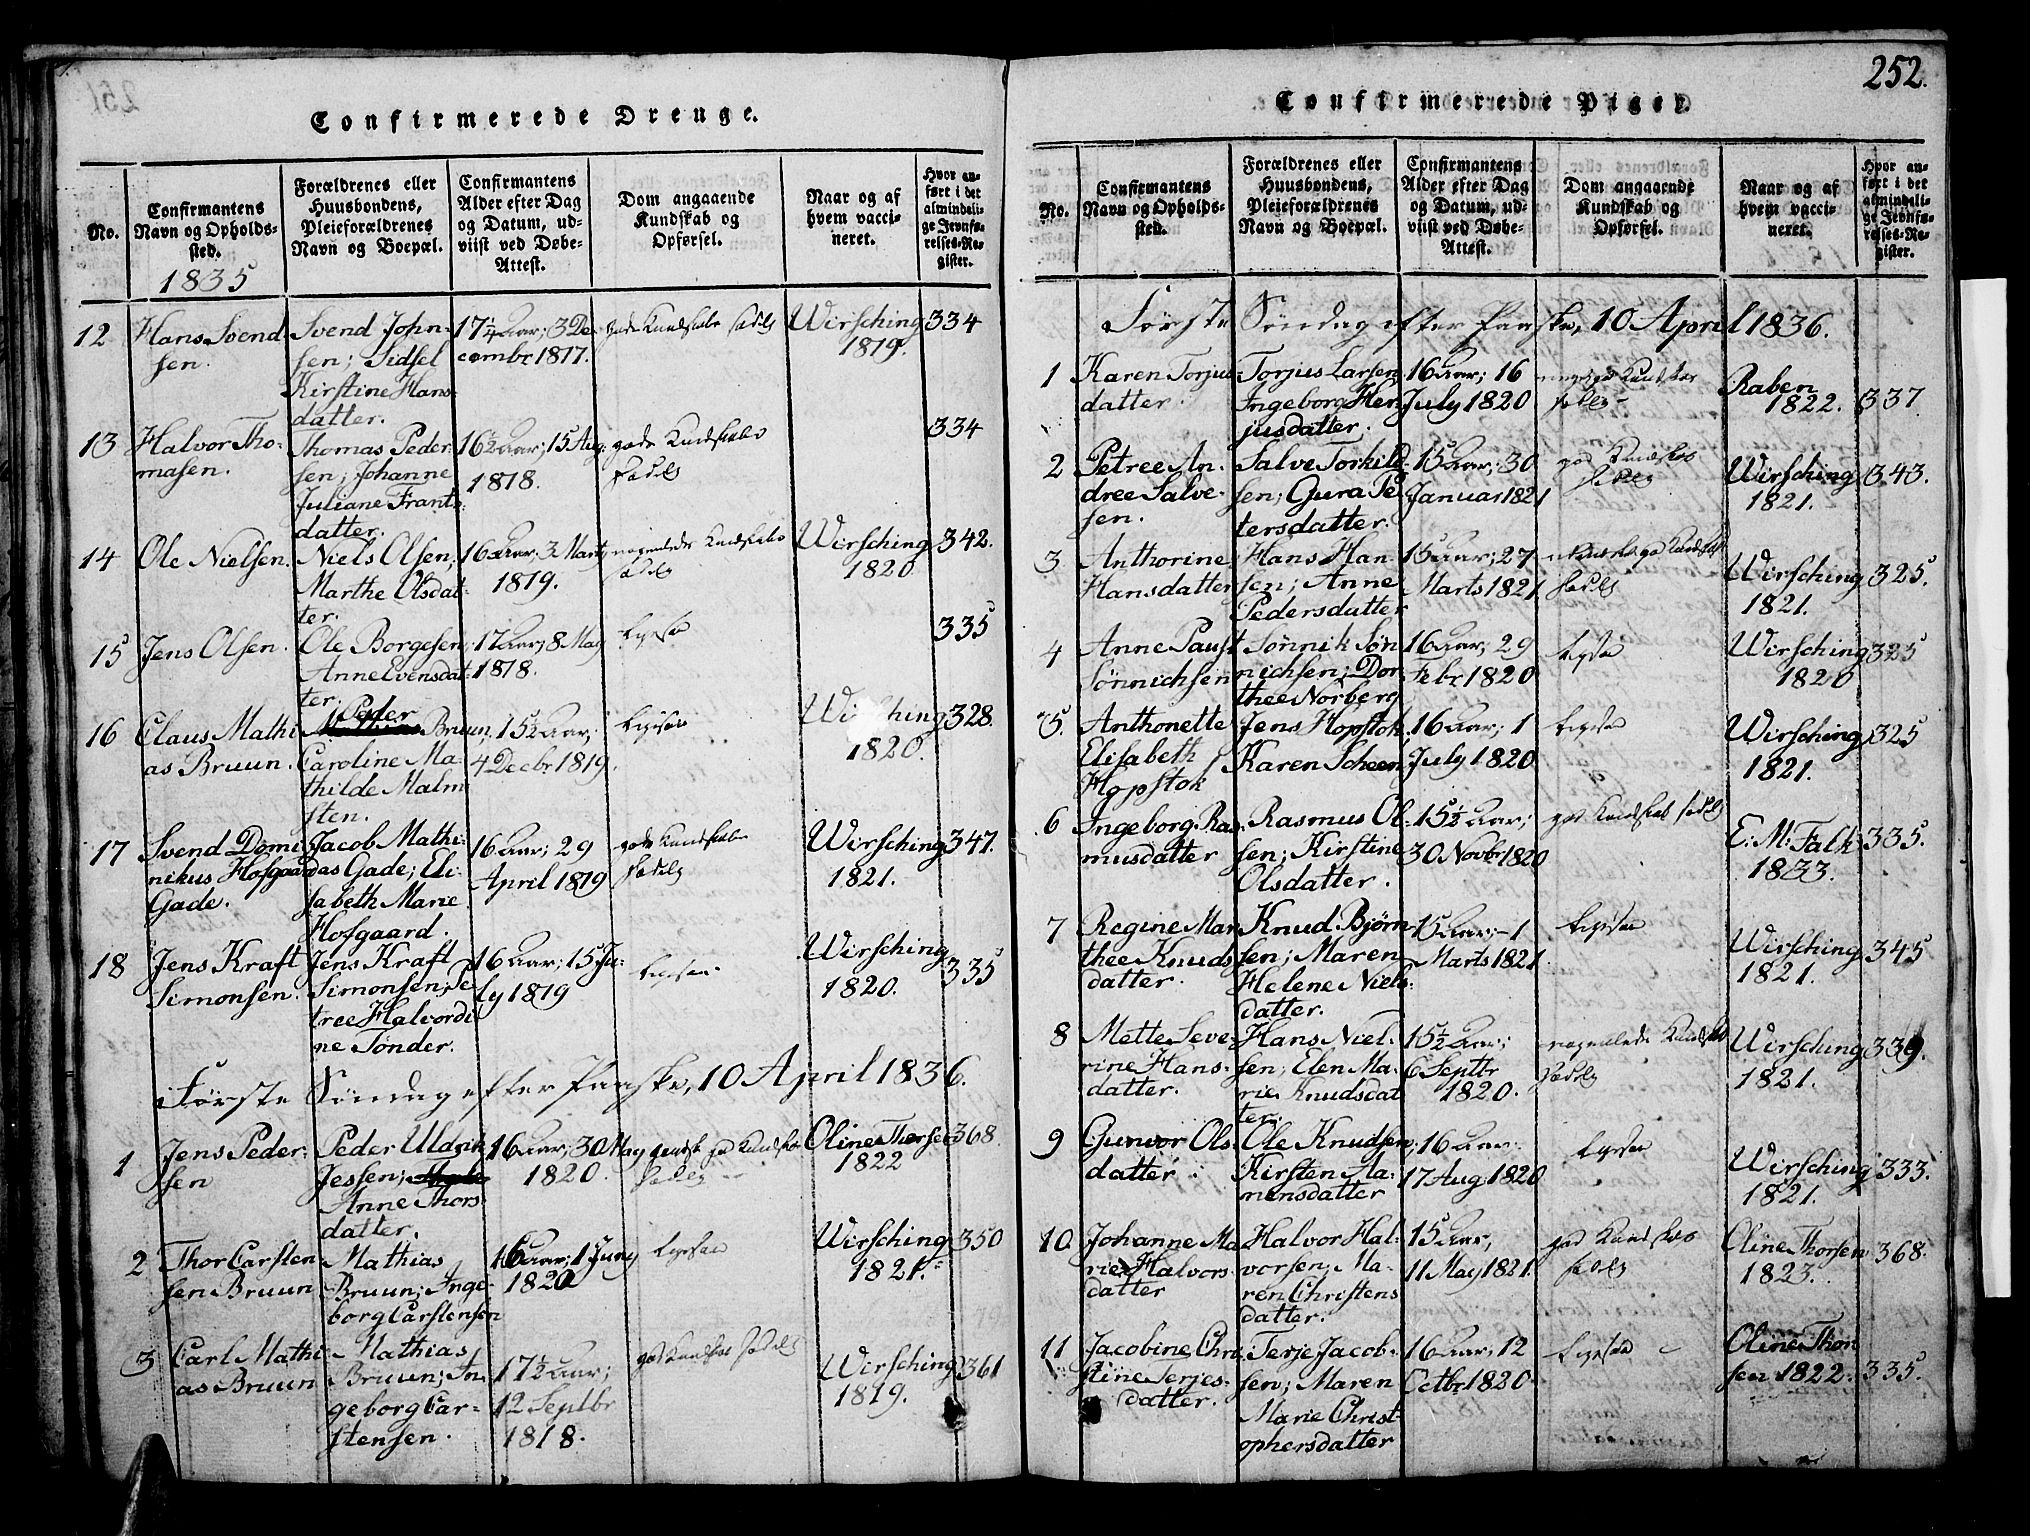 Confirmerede Drenge.
No.
Confirmantens
Navn og Opholds-
sted.
1835
Forældrenes eller
Huusbondens,
Pleieforældrenes
Navn og Boepæl.
Confirmantens
Alder efter Dag
og Datum, ud-
viist ved Døbe-
Attest.
Dom angaaende
Kundskab og
Opførsel.
Naar og af
hvem vacci-
neret.
Hvor an-
ført i det
almindeli-
ge Jevnfø-
relses-Re-
gister.
12
Hans Svend
sen.
Svend John-
sen; Sidsel
Kirstine Hans-
datter.
17 1/4 Aar; 3 De-
cembr 1817.
gode Kundskaber
Wirsching
1819.
334
13
Halvor Tho-
masen.
Thomas Peder-
sen; Johanne
Juliane Frants-
datter.
16 1/2 Aar; 15 Aug.
1818.
gode Kundskaber
334
14
Ole Nielsen.
Niels Olsen;
Marthe Olsdat-
ter.
16 Aar; 3 Marts
1819.
nogenlede Kundskaber
Wirsching
1820
342.
15
Jens Olsen.
Ole Borgesen;
Anne Evensdat-
ter.
17 Aar; 8 May
1818.
Ligesaa
335
16
Claus Mathi
as Bruun.
Peder
Mathias Bruun,
Caroline Ma-
thilde Malm
sten.
15 1/2 Aar;
4 Decbr 1819.
Ligesaa
Wirsching
1820.
328.
17
Svend Domi
nikus Hofgaard
Gade.
Jacob Mathi-
as Gade; Eli-
sabeth Marie
Hofgaard.
16 Aar; 29
April 1819
gode Kundskaber
Wirsching
1821.
347.
18
Jens Kraft
Simonsen.
Jens Kraft
Simonsen; Pe-
tree Halvordi
ne Tønder.
16 Aar; 15 Ju-
ly 1819
Ligesaa
Wirsching
1820.
335
Første Søndag efter Paaske, 10 April 1836.
1
Jens Peder-
sen
Peder Uldrik
Jessen;
Anne Thors
datter.
16 Aar; 30 May
1820.
god Kundskab
Oline Thorsen
1822
368.
2
Thor Carsten
sen Bruun
Mathias
Bruun; Inge-
borg Carstensen
16 Aar; 1 Juny
1820
Ligesaa
Wirsching
1821.
350
3
Carl Mathi
as Bruun
Mathias
Bruun; In-
geborg Car-
stensen.
17 1/2 Aar;
12 Septbr
1818.
god Kundskab
Wirsching
1819.
361
252.
Confirmerede Piger.
No.
Confirmantens
Navn og Opholds-
sted.
Forældrenes eller
Huusbondens,
Pleieforældrenes
Navn og Boepæl.
Confirmantens
Alder efter Dag
og Datum, ud-
viist ved Døbe-
Attest.
Dom angaaende
Kundskab og
Opførsel.
Naar og af
hvem vacci-
neret.
Hvor an-
ført i det
almindeli-
ge Jevnfø-
relses-Re-
gister.
Første Søndag efter Paaske, 10 April 1836.
1
Karen Torjus
datter.
Torjus Larsen
Ingeborg Her-
jusdatter.
16 Aar; 16
July 1820
Raben
1822.
337
2
Petree An-
dree Salve-
sen.
Salve Torkild-
sen; Gura Pe
tersdatter.
15 Aar; 30
Januar 1821
god Kundskab
Wirsching
1821.
343.
3
Anthorine
Hansdatter
Hans Han-
sen; Anne
Pedersdatter
15 Aar; 27
Marts 1821
Wirsching
1821.
325.
4
Anne Paust
Sønnichsen
Sønnik Søn
nichsen; Dor-
thee Norberg
16 Aar; 29
Febr 1820
Ligesaa
Wirsching
1820
325
5.
Anthonette
Elisabeth
Hopstok
Jens Hopstok,
Karen Scheen
16 Aar; 1
July 1820
Ligesaa
Wirsching
1821.
325
6
Ingeborg Ras-
musdatter
Rasmus Ol-
sen; Kirstine
Olsdatter.
15 1/2 Aar;
30 Novbr 1820
god Kundskab
E: M: Falk
1833.
335.
7
Regine Mar
thee Knuds
datter.
Knud Bjørn-
sen; Maren
Helene Niels-
datter.
15 Aar; 1
Marts 1821.
Ligesaa
Wirsching
1821.
345
8
Mette Seve-
rine Hans-
datter.
Hans Niel-
sen; Elen Ma-
rie Knudsdat
ter.
15 1/2 Aar;
6 Septbr
1820.
nogenlede Kundskab
Wirsching
1821.
339.
9
Gunvor Ols-
datter
Ole Knudsen,
Kirsten Aa-
mensdatter
16 Aar;
17 Aug 1820
Ligesaa
Wirsching
1821.
333.
10
Johanne Ma
rie Halvors-
datter
Halvor Hal-
vorsen; Ma-
ren Christens
datter.
15 Aar,
11 May 1821.
god Kundskab
Oline Thorsen
1823.
368.
11
Jacobine Chri
stine Terjes-
datter.
Terje Jacob-
sen; Maren
Marie Christ-
ophersdatter
16 Aar; 12
Octbr 1820
Ligesaa
Oline Thor
sen 1822.
335.